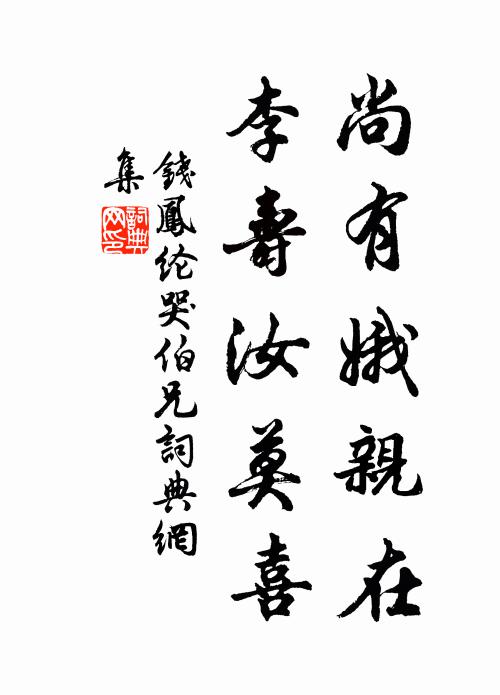 尚有娥親在
李壽汝莫喜
錢鳳纶哭伯兄詞典網
集
詞典網印